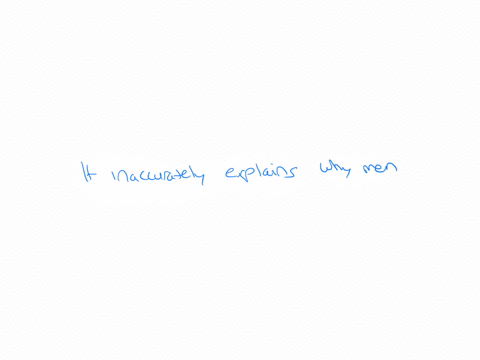 It inaccurately explains why men